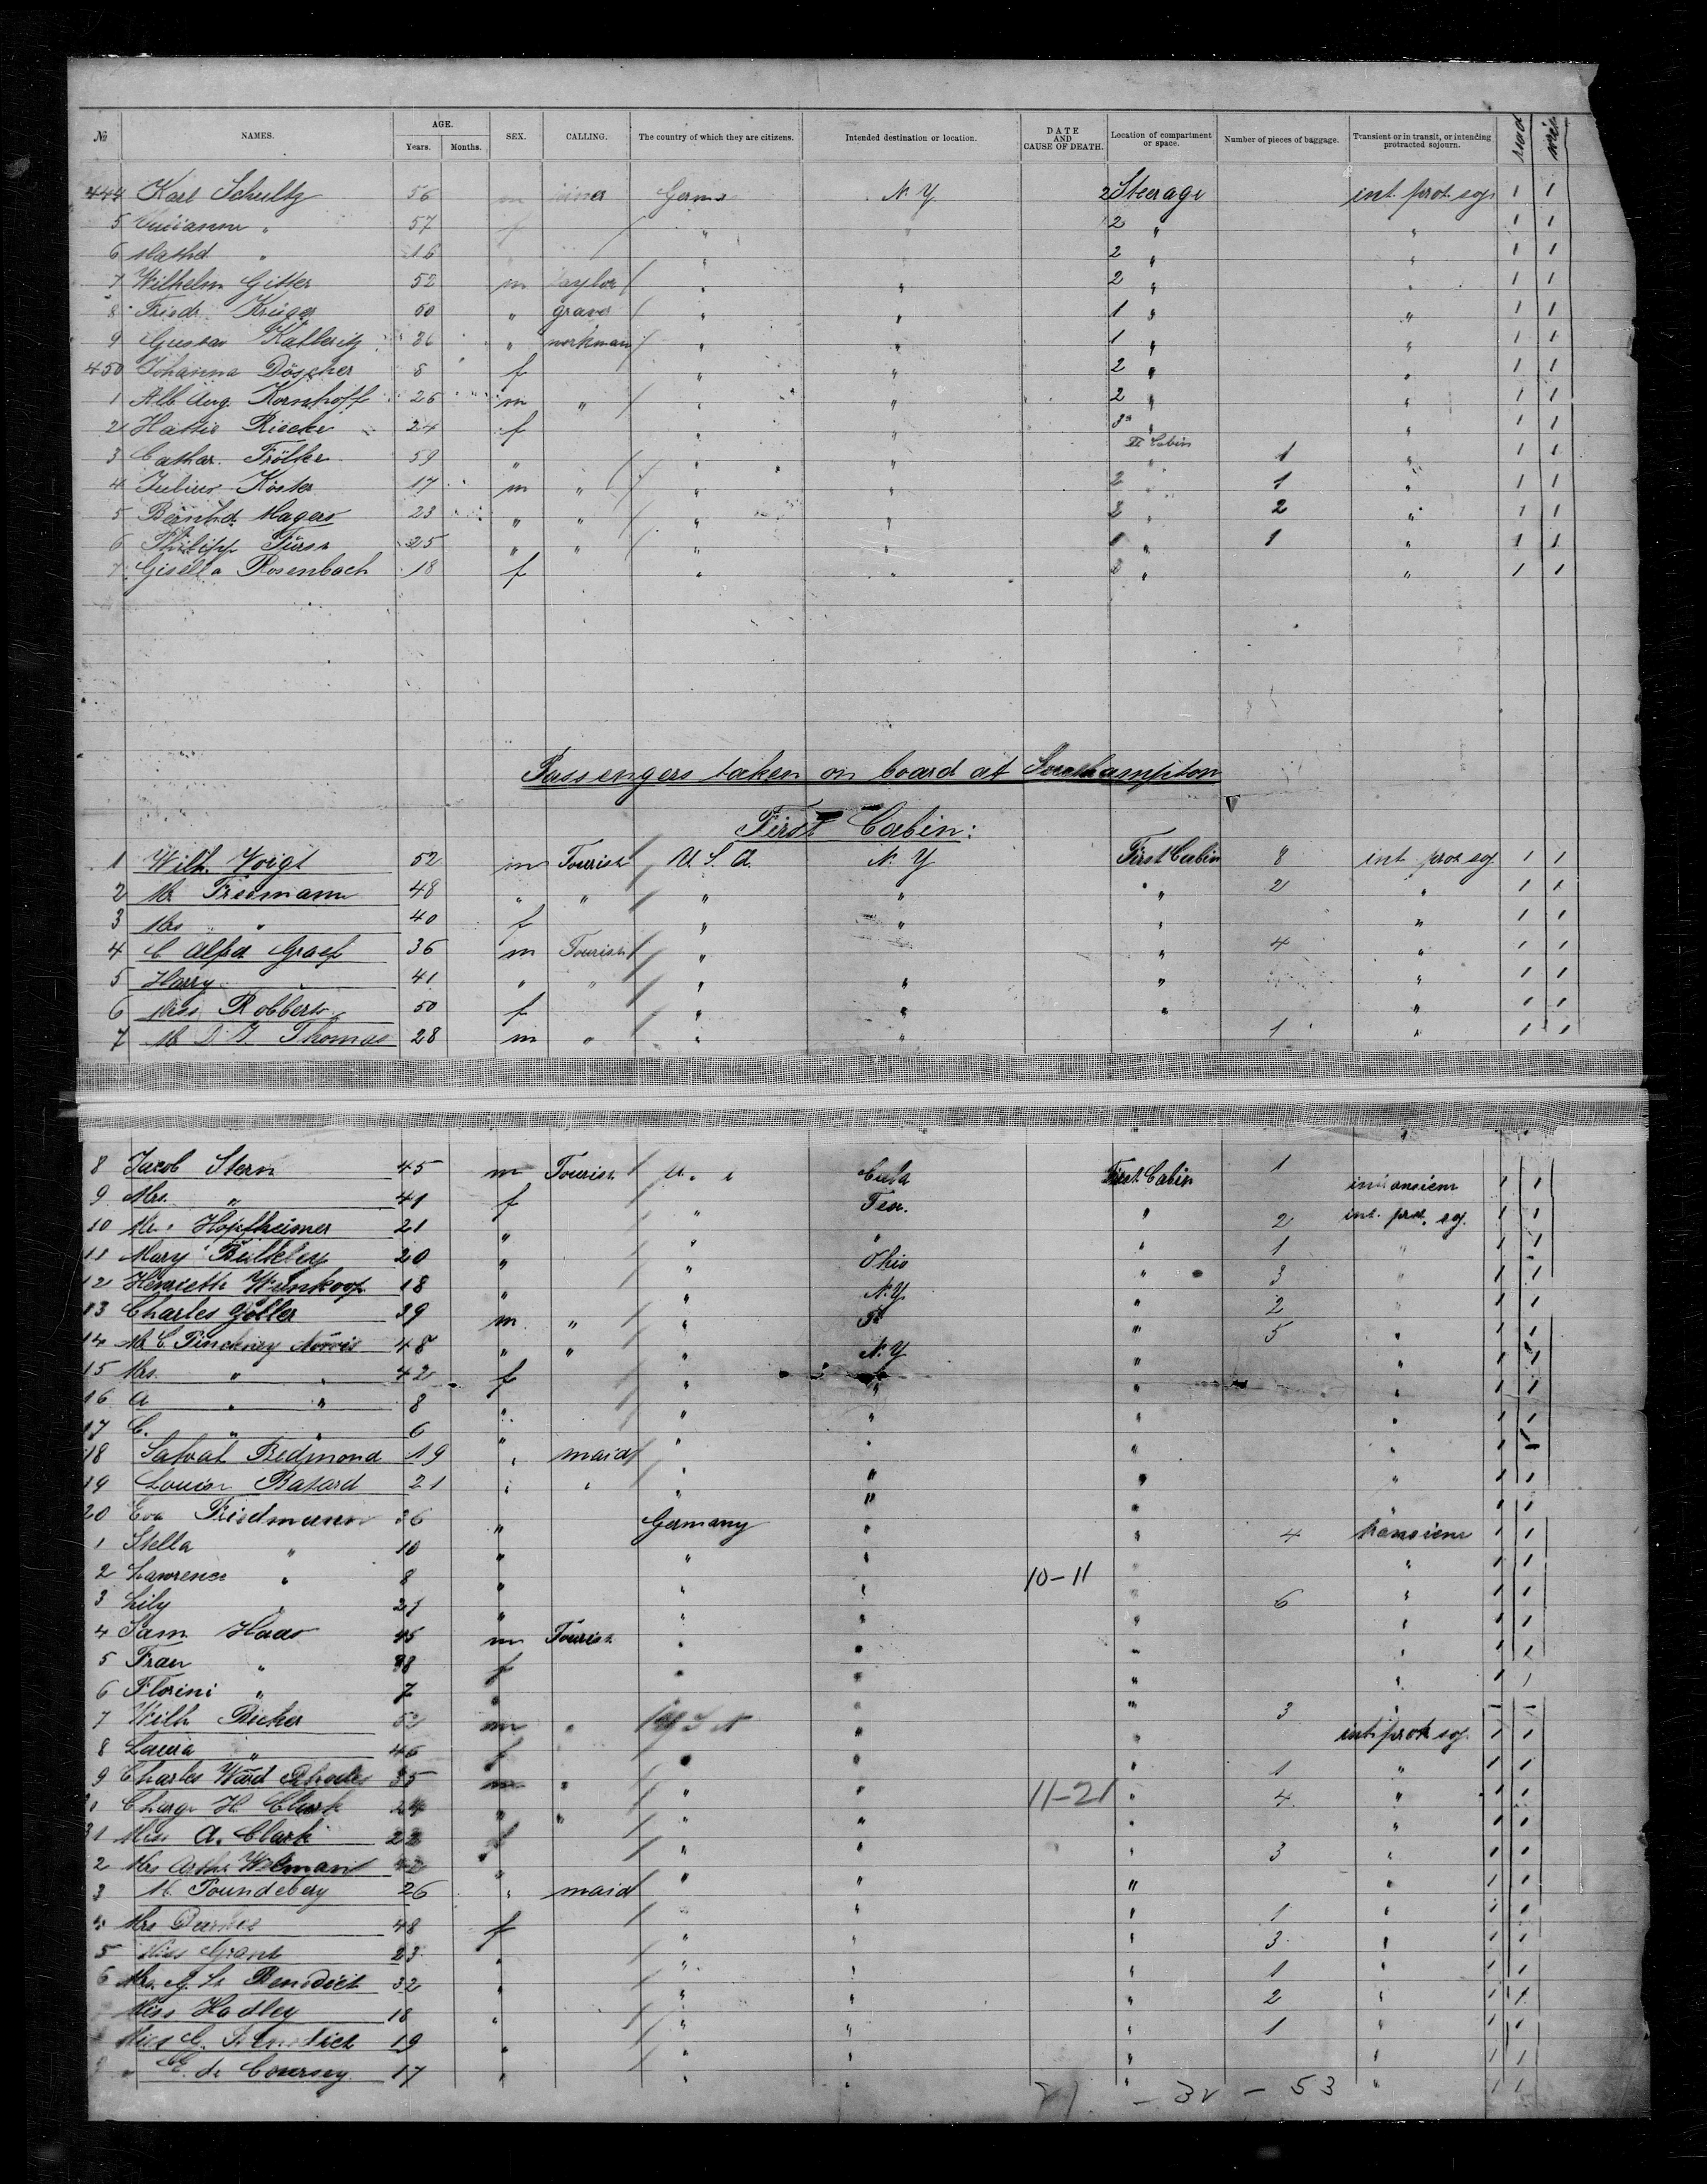 No NAMES. AGE. Years. Months. SEX. CALLING. The country of which they are citizens. Intended destination or location. DATE AND CAUSE OF DEATH. Location of compartment or space. Number of pieces of baggage. Transient or in transit, or intending protracted sojourn. read
444 Karl Schultz 56 m Germa N.Y 2 Steerage int. prot. soj. 1 1
5 " 57 f " " 2 " " 1 1
6 " 16 " " 2 " " 1 1
7 Wilhelm Gitter 52 m taylor " " 2 " " 1 1
8 Friedr. Krüger 50 " graver " " 1 " " 1 1
9 Gustav 26 " workman " " 1 " " 1 1
450 Johanna Döscher 8 f " " 2 " " 1 1
1 Alb. Aug. Kornhoff 26 m " " " 2 " " 1 1
2 Hattie Riecke 24 f " " " " 1 1
3 Cathar. Frölke 59 " " " II Cabin " 1 " 1 1
4 Julius Köster 17 m " " " 2 1 " 1 1
5 Bernhd. Magers 23 " " " " 2 " 2 " 1 1
6 Philipp Fürst 25 " " " " 1 " 1 " 1 1
7 Gisella Rosenbach 18 f " " 2 " " 1 1
Passengers taken on board at Southampton
First Cabin:
1 Wilh. Voigt 52 m Tourist U.S.A. N.Y First Cabin 8 int prot soj 1 1
2 Mr. Friedmann 48 " " " " " 2 " 1 1
3 Mrs " 40 f " " " " 1 1
4 C Alfrd Graef 36 m Tourist " " 4 " 1 1
5 Harry 41 " " " " " " 1 1
6 Miss Robberts 50 f " " " " 1 1
7 Mr D. J. Thomas 28 m " " " 1 " 1 1
8 Jacob Stern 45 m Tourist U. Cuba First Cabin 1 1 1
9 Mrs. " 41 f " Tex. " 2 int. prot. soj. 1 1
10 Hopfheimer 21 " " " " 1 " 1 1
11 Mary Bulkeley 20 " " Ohio " 3 " 1 1
12 Henrieth Wunkoop 18 " " N.Y. " 2 " 1 1
13 Charles Goller 39 m " " " 5 " 1 1
14 Mr C Pinckney Norris 48 " " " N.Y " " 1 1
15 Mrs. " " 42 f " " " " 1 1
16 A " " 8 " " " " " 1 1
17 C. " " 6 " " " " " 1 1
18 Redmond 19 " maid " " " " 1 1
19 Louise Batard 21 " " " " " " 1 1
20 Eva Friedmann 36 " Germany " " 4 transient 1 1
1 Stella " 10 " " " " " 1 1
2 Lawrence " 8 " " " 10-11 " " 1 1
3 Lily " 21 " " " " 6 " 1 1
4 Sam Haas 45 m Tourist " " " " 1 1
5 Frau " 38 f " " " " 1 1
6 Florini " 7 " " " " 3 " 1 1
7 Wilh Ricker 52 m " U S A " " int. prot. soj. 1 1
8 Laura " 46 f " " " 1 " 1 1
9 Charles Ward Rhodes 35 m " " " 11-21 " 4 " 1 1
H. Clark 24 " " " " " " 1 1
31 Miss A. Clark 22 f " " " 3 " 1 1
2 Mrs 42 " " " " " 1 1
3 M. Poundebery 26 " maid " " " 1 " 1 1
4 Mrs 48 f " " " 3 " 1 1
5 Miss Grant 23 " " " " 1 " 1 1
6 Mrs. Benedict 32 " " " " 2 " 1 1
Miss Hadley 18 " " " " 1 " 1 1
Miss 19 " " " " " 1 1
" de Coursey 17 " " " " " 1 1
- 32 - 53